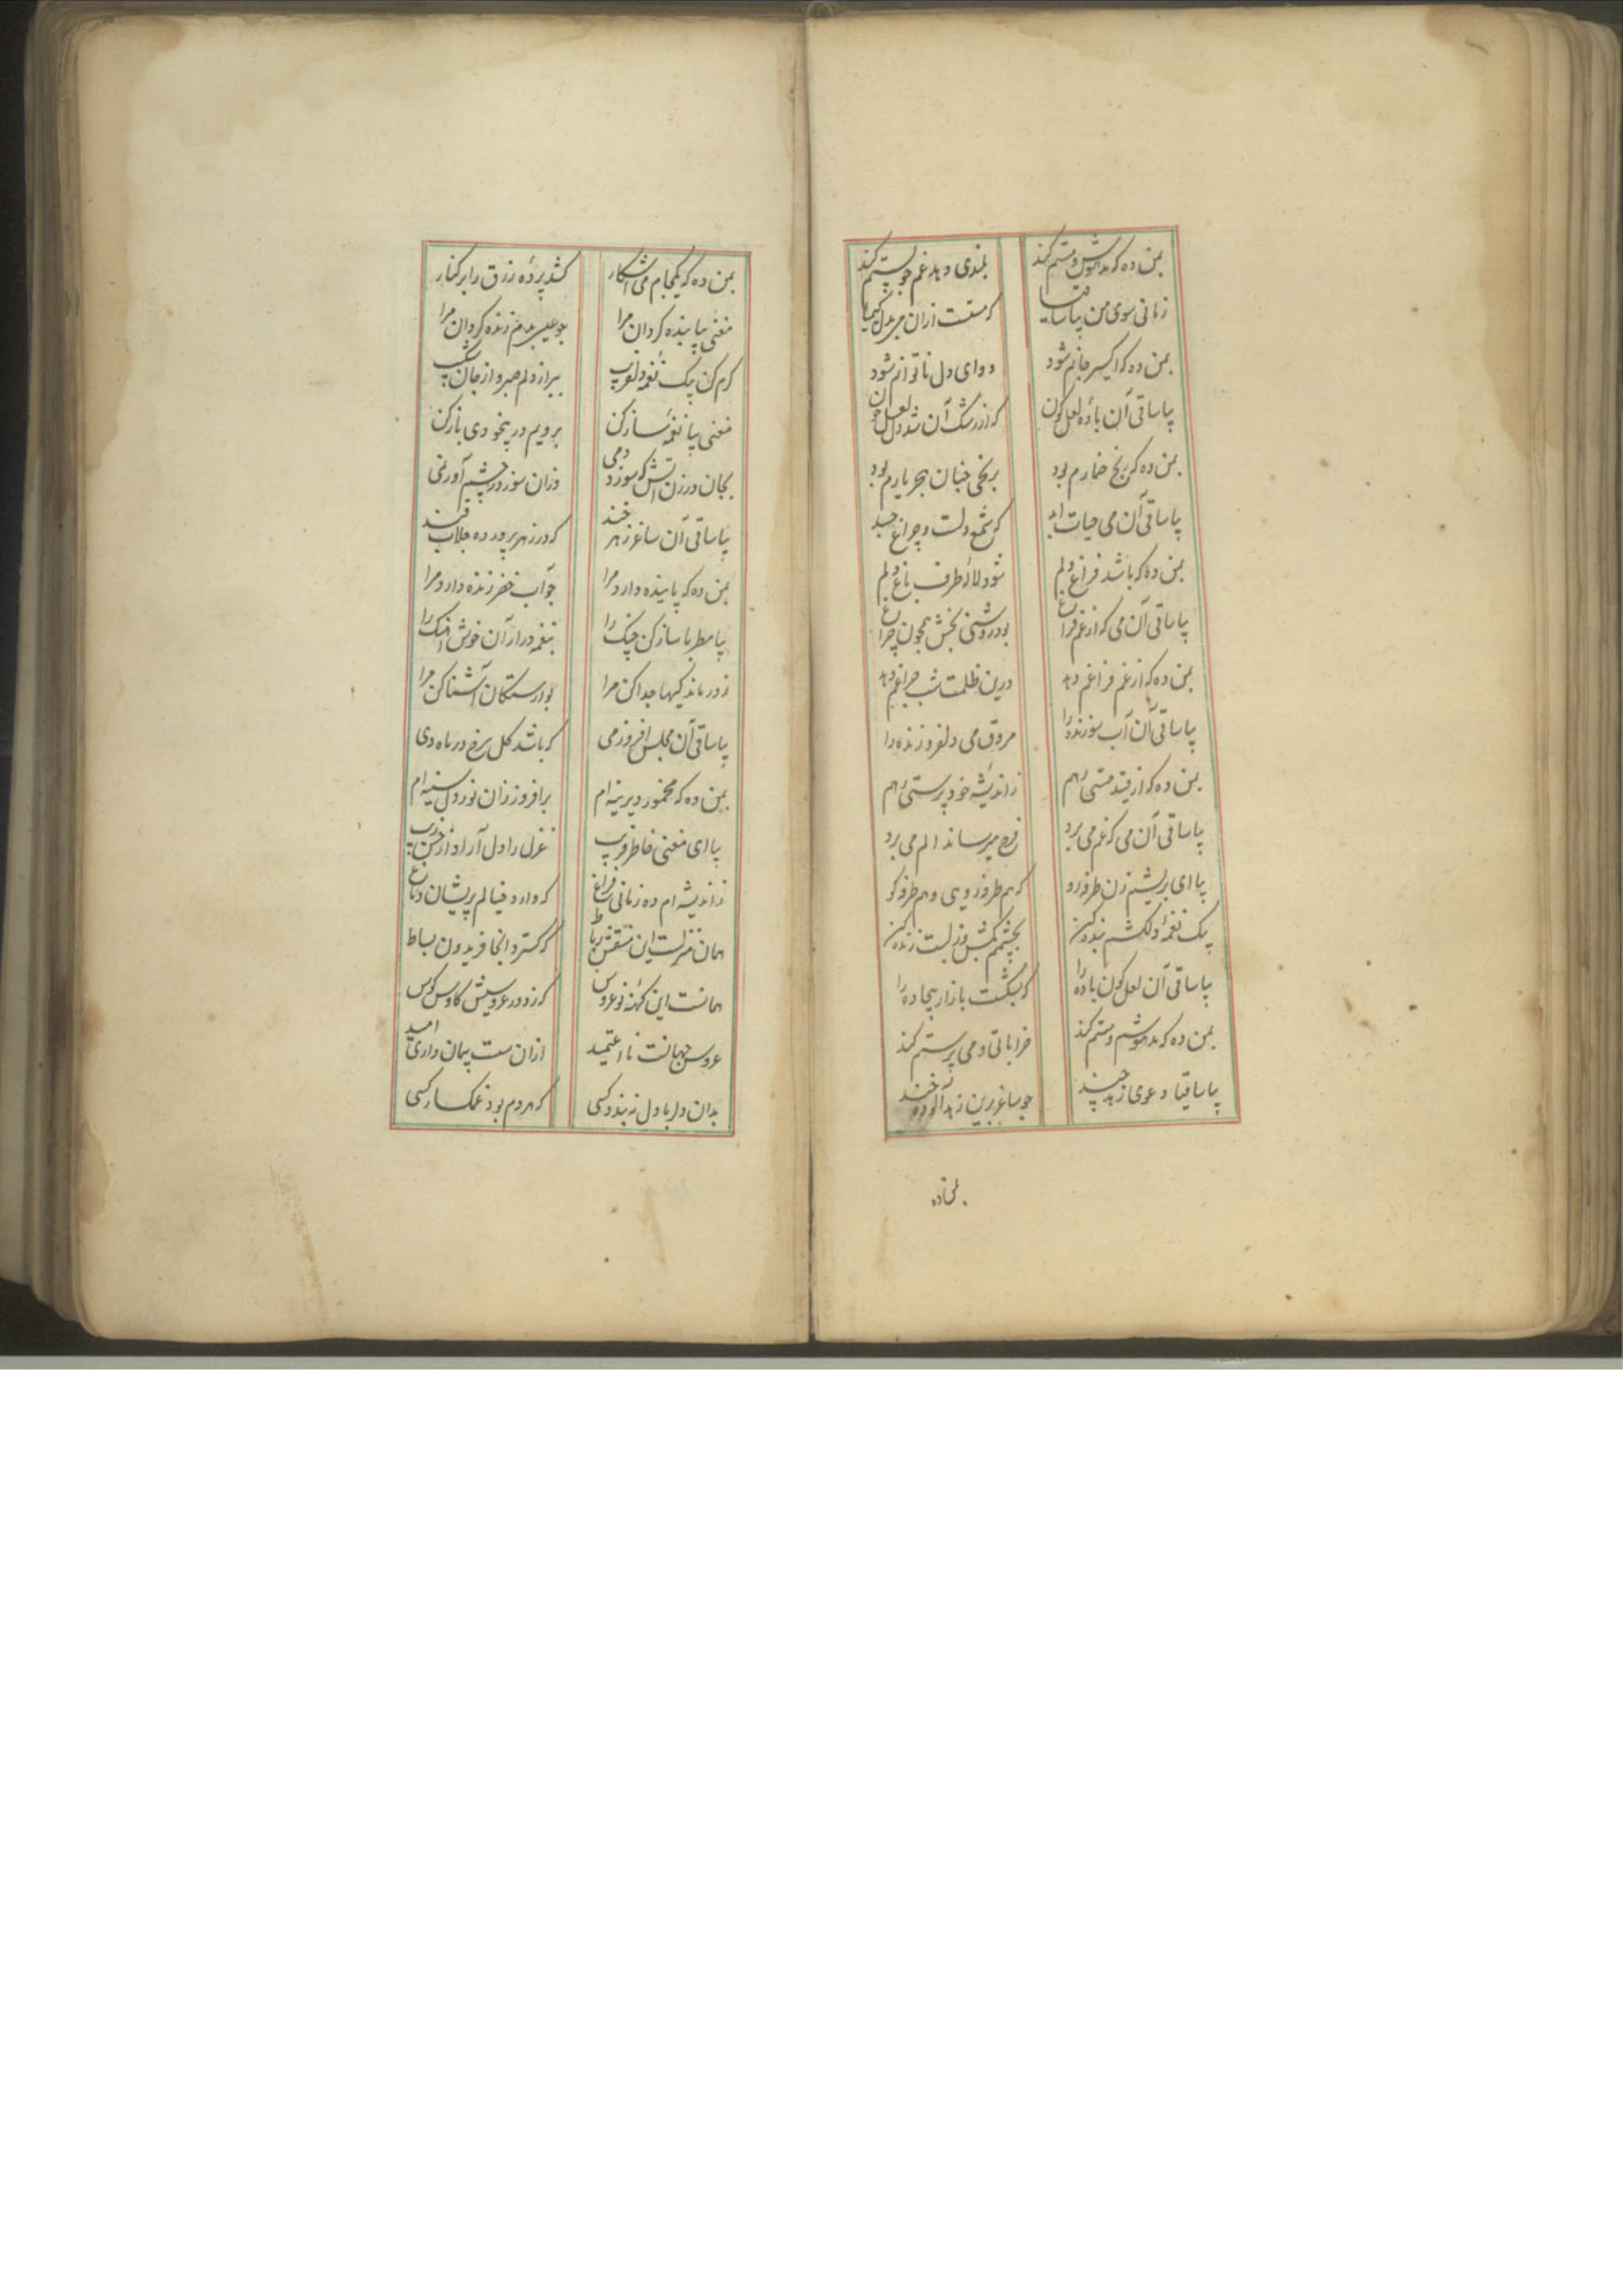 بمن ده که مدهوش و مستم کند بلندی دهد غم چو پستم کند
زمانی سوی من بیا ساقیا که مستت ازان می بدل کیمیا
بمن ده که اکسیر جانم شود دوای دل ناتوانم شود
بیا ساقی آن بادهٔ لعل گون که از رشک آن شد دل لعل خون
بمن ده کز رنج خمارم بود برنجی چنان هجر یارم بود
بیا ساقی آن می حیات ابد که شمع دلست و چراغ
بمن ده که باشد فراغ دلم شود لاله طرف باغ دلم
بیا ساقی آن می که از غم فراغ بود روشنی بخش همچون چراغ
بمن ده که از غم فراغم دهد درین ظلمت شب چراغم دهد
بیا ساقی آن آب سوزنده را مروق می دلفروزنده را
بمن ده که از قید هستی رهم ز اندیشه خود پرستی رهم
بیا ساقی آن می که غم می برد فرح میرساند الم می برد
بیا ای بریشم زن طرفه رو که هم طرفه رویی و هم طرفه گو
یک نغمهٔ دلکشم بنده کن بچشمم بکش وز لبت زنده کن
بیا ساقی آن لعل گون باده را که بشکست بازار بیجاده را
بمن ده که مدهوشم و مستم کند خراباتی و می پرستم کند
بیا ساقیا دعوی زهد چند چو ساغر برین زهد آلوده خند
بمن ده
بمن ده که یکجام می آشکار کشد پردهٔ زرق را بر کنار
مغنی بیا بنده گردان مرا بو عیسی بدم زنده گردان مرا
کرم کن یک نغمهٔ دلفریب ببر از دلم صبر و از جان شکیب
مغنی بیا نغمهٔ ساز کن برویم در بیخودی باز کن
بجان ورزن آتش که سوزد دمی وزان سوز در چشمم آور نمی
بیا ساقی آن ساغر زهر خند که در زهر پرورده جلاب قند
بمن ده که پاینده دارد مرا چو آب خضر زنده دارد مرا
بیا مطربا ساز کن چنگ را بنغمه درار آن خوش آهنگ را
ز درماندگیها جدا کن مرا بوارستگان آشنا کن مرا
بیا ساقی آن مجلس افروز می که باشد گل سرخ در ماه دی
بمن ده که مخمور دیرینه ام برافروز زان نور دل سینه ام
بیا ای مغنی خاطر فریب غزل را دل آرا
ز اندیشه ام ده زمانی فراغ که دارد خیالم پریشان دماغ
همان منزلست این منقش رباط که گسترد آنجا فریدون بساط
همانست این کهنه نوعروس که زد در عروسیش کاوس کوس
عروس جهانست نا اعتمید ازان سست پیمان داری امید
بدان دلربا دل نبندد کسی که هر دم بود غمگسار کسی